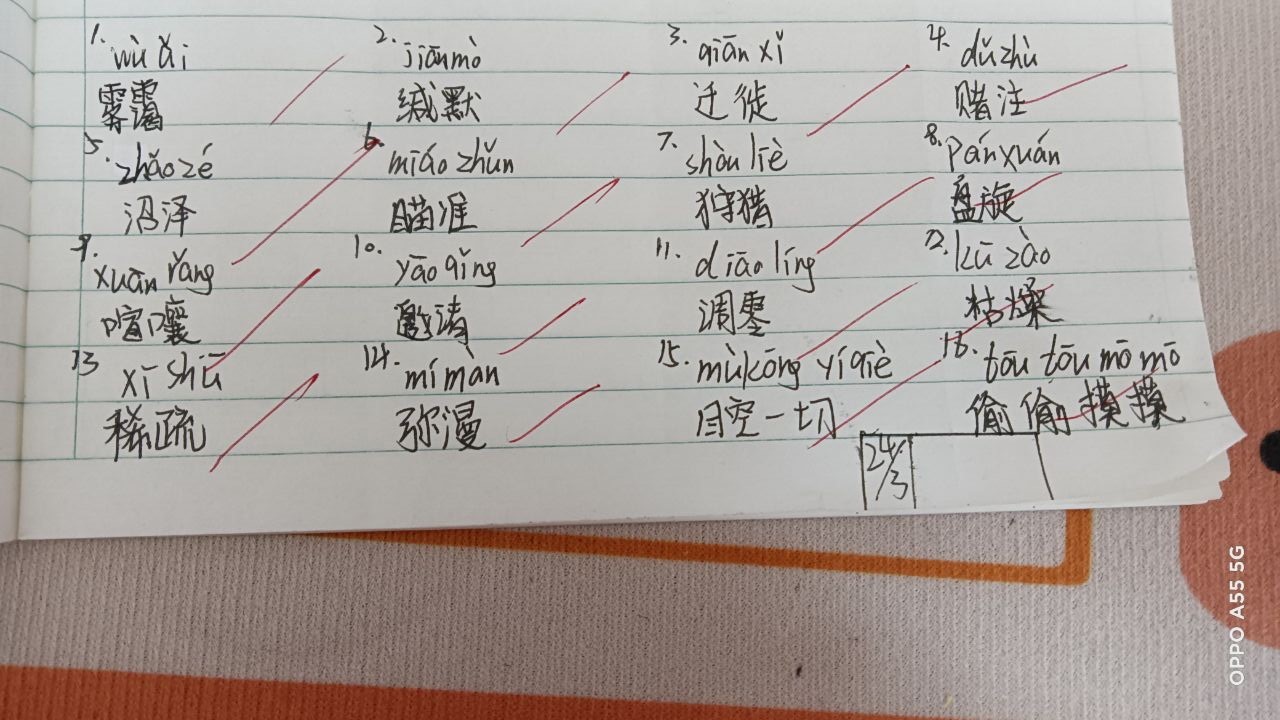 1. wù ǎi 2. jiānmò 3. qiān xǐ 4. dǔ zhù
雾霭 缄默 迁徙 赌注
5. zhǎo zé 6. miáo zhǔn 7. shòu liè 8. pán xuán
沼泽 瞄准 狩猎 盘旋
9. xuān rǎng 10. yāo qǐng 11. diāo líng 12. kū zào
喧嚷 邀请 凋零 枯燥
13 xī shū 14. mí màn 15. mùkōng yíqiè 16. tōu tōu mō mō
稀疏 弥漫 目空一切 偷偷摸摸
24/3
OPPO A55 5G